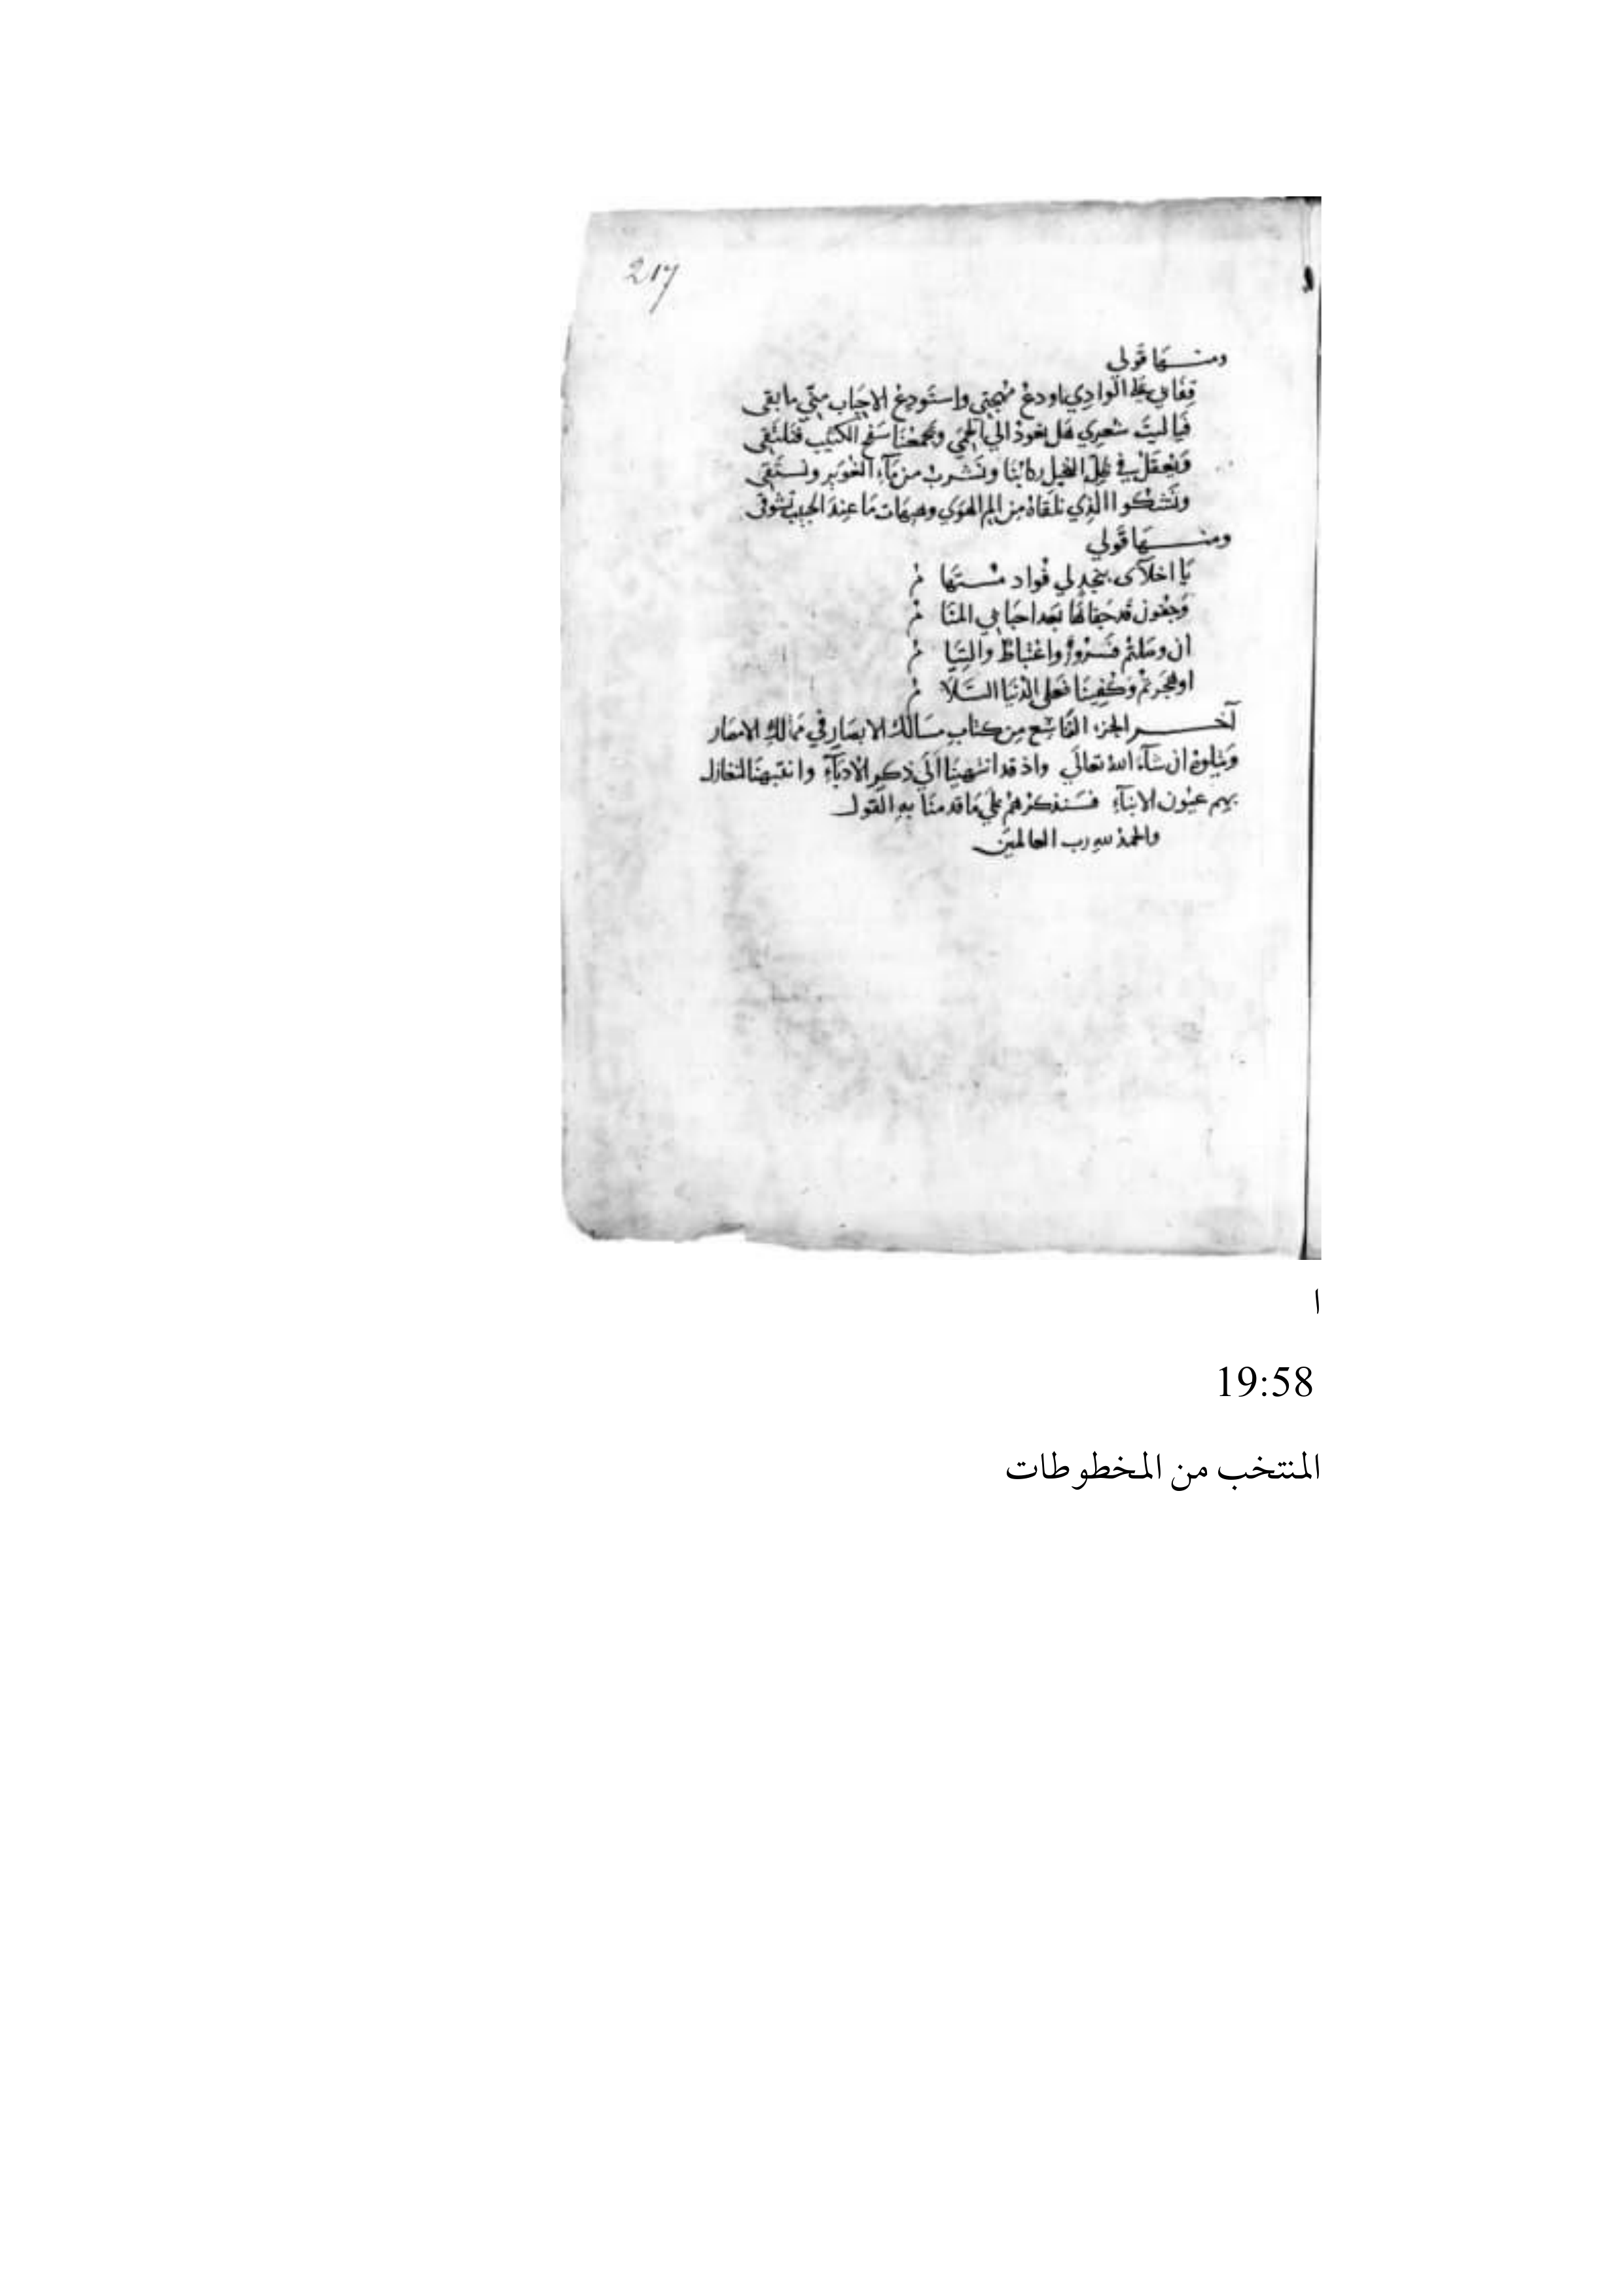 217
ومنها قولي
قفا بي على الوادي اودع مهجتي واستودع الاحباب مني ما بقى
فيا ليت شعري هل نعود الي الحمي وتجمعنا سفح الكثيب فنلتقى
ونعقل في ظل النخيل ركابنا ونشرب من مآء الغوير ونستقى
ونشكوا الذي نلقاه من الم الهوي وهيهات ما عند الحبيب تشوقى
ومنها قولي
يا اخلآى بنجد لي فواد مستها م
وجفون قد جفاها بعد احبابي المنا م
ان وصلتم فسرور واغتباط والتيا م
او هجرتم وكفينا فعلى الدنيا السلا م
آخر الجزء التاسع من كتاب مسالك الابصار في ممالك الامصار
ويتلوه ان شآء الله تعالي واذ قد انتهينا الي ذكر الادبآء وانتبهنا لتغازل
بهم عيون الانبآء فسنذكرهم علي ما قدمنا به القول
والحمد لله رب العالمين
ا
19:58
المنتخب من المخطوطات